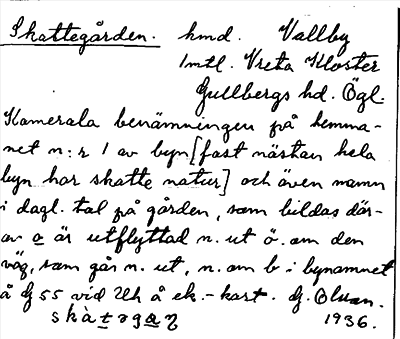 Skattegården. hmd. Vallby
Imtl. Vreta Kloster
Gullbergs hd. Ögl.
Kamerala benämningen på hemma-
net n:r 1 av byn [fast nästan hela
byn har skatte natur] och även namn
i dagl. tal på gården, som bildas där-
av a är utflyttad n. ut ö. om den
väg, som går n. ut, n. om b i bynamnet
å G 55 vid Uh å ek.-kart. G. Olson.
skàtəgaɳ 1936.